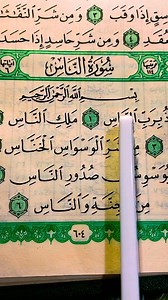 سِقٍ إِذَا وَقَبَ ٣ وَمِن شَرِّ النَّفَّٰثَٰتِ
عُقَدِ ٤ وَمِن شَرِّ حَاسِدٍ إِذَا حَسَدَ
سُورَةُ النَّاسِ
بِسْمِ اللَّهِ الرَّحْمَٰنِ الرَّحِيمِ
ذُ بِرَبِّ النَّاسِ ١ مَلِكِ النَّاسِ
مِن شَرِّ الْوَسْوَاسِ الْخَنَّاسِ
يُوَسْوِسُ صُدُورِ النَّاسِ
مِنَ الْجِنَّةِ وَالنَّاسِ ٦
٦٠٤